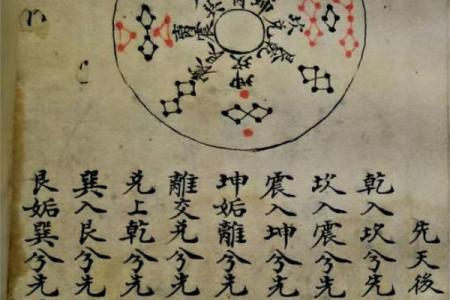 先天後
乾入坎兮先
坎入震兮先
震入坤兮先
坤姤離兮先
離交兌兮先
兌上乾兮先
巽入艮兮先
艮姤巽兮先